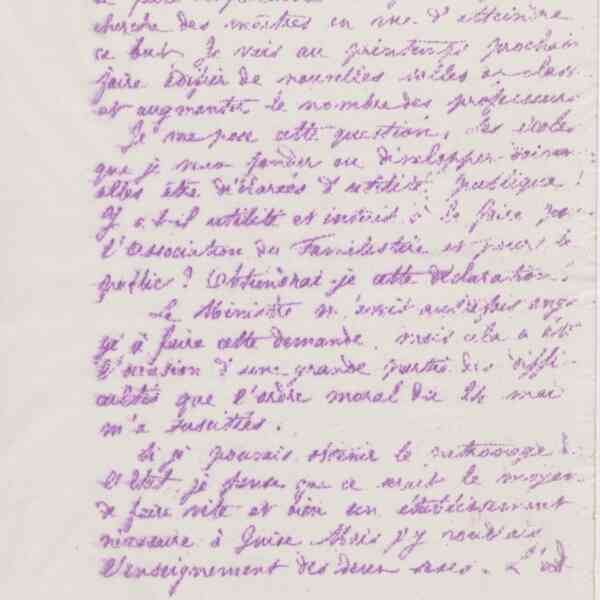 cherche des maîtres en vue d'atteindre
ce but. Je vais au printemps prochain
faire édifier de nouvelles salles de class
et augmenter le nombre des professeurs
Je me pose cette question, les écoles
que je veux fonder ou développer doivent
elles être déclarées d'utilité publique ?
Y a-t-il utilité et intérêt à le faire pour
l'association du Familistère et pour le
public ? Obtiendrai-je cette déclaration ?
Le Ministre m'avait autrefois enga
gé à faire cette demande, mais cela a été
l'occasion d'une grande partie des diffi
cultés que l'ordre moral du 24 mai
m'a suscitées.
Si je pouvais obtenir le patronage de
l'Etat je pense que ce serait le moyen
de faire vite et bien un établissement
nécessaire à Guise. Mais j'y voudrais
l'enseignement des deux sexes. L'Et